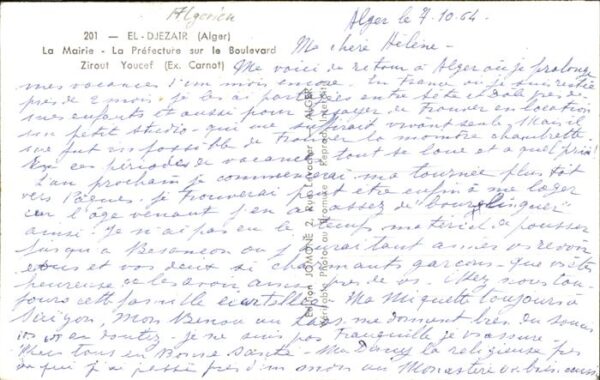 Algerien
Alger le 7.10.64
201 — EL-DJEZAIR (Alger)
La Mairie - La Préfecture sur le Boulevard
Zirout Youcef (Ex. Carnot)
Ma chère Hélène -
Me voici de retour à Alger où je prolonge
mes vacances d'un mois encore. En France où je suis restée
près de 2 mois, je les ai partagées entre
mes enfants et aussi pour essayer de trouver en location
un petit studio - qui me suffirait vivant seule. Mais il
me fut impossible de trouver la moindre chambrette
En ces périodes de vacances tout se loue et à quel prix!
L'an prochain je commencerai ma tournée plus tôt
vers Pâques. Je trouverai peut être enfin à me loger
car l'âge venant j'en ai assez de "bourlinguer"
ainsi. Je n'ai pas eu le temps matériel de pousser
jusqu'à Besançon où j'aurais tant aimé vs revoir
vous et vos deux si charmants garçons que vs êtes
heureuse de les avoir près de vs. Chez nous tou-
jours cette famille écartelée. Ma Miguette toujours à
me donnent bien du soucis
vs vs en doutez. Je ne suis pas tranquille je vs assure.
tous en Bonne Santé - la religieuse
qui j'ai passé près d'un mois au Monastère aussi
Edition JOMONE 2, Rue - ALGER
Véritable Photo au Bromure - Reprod. Interdite